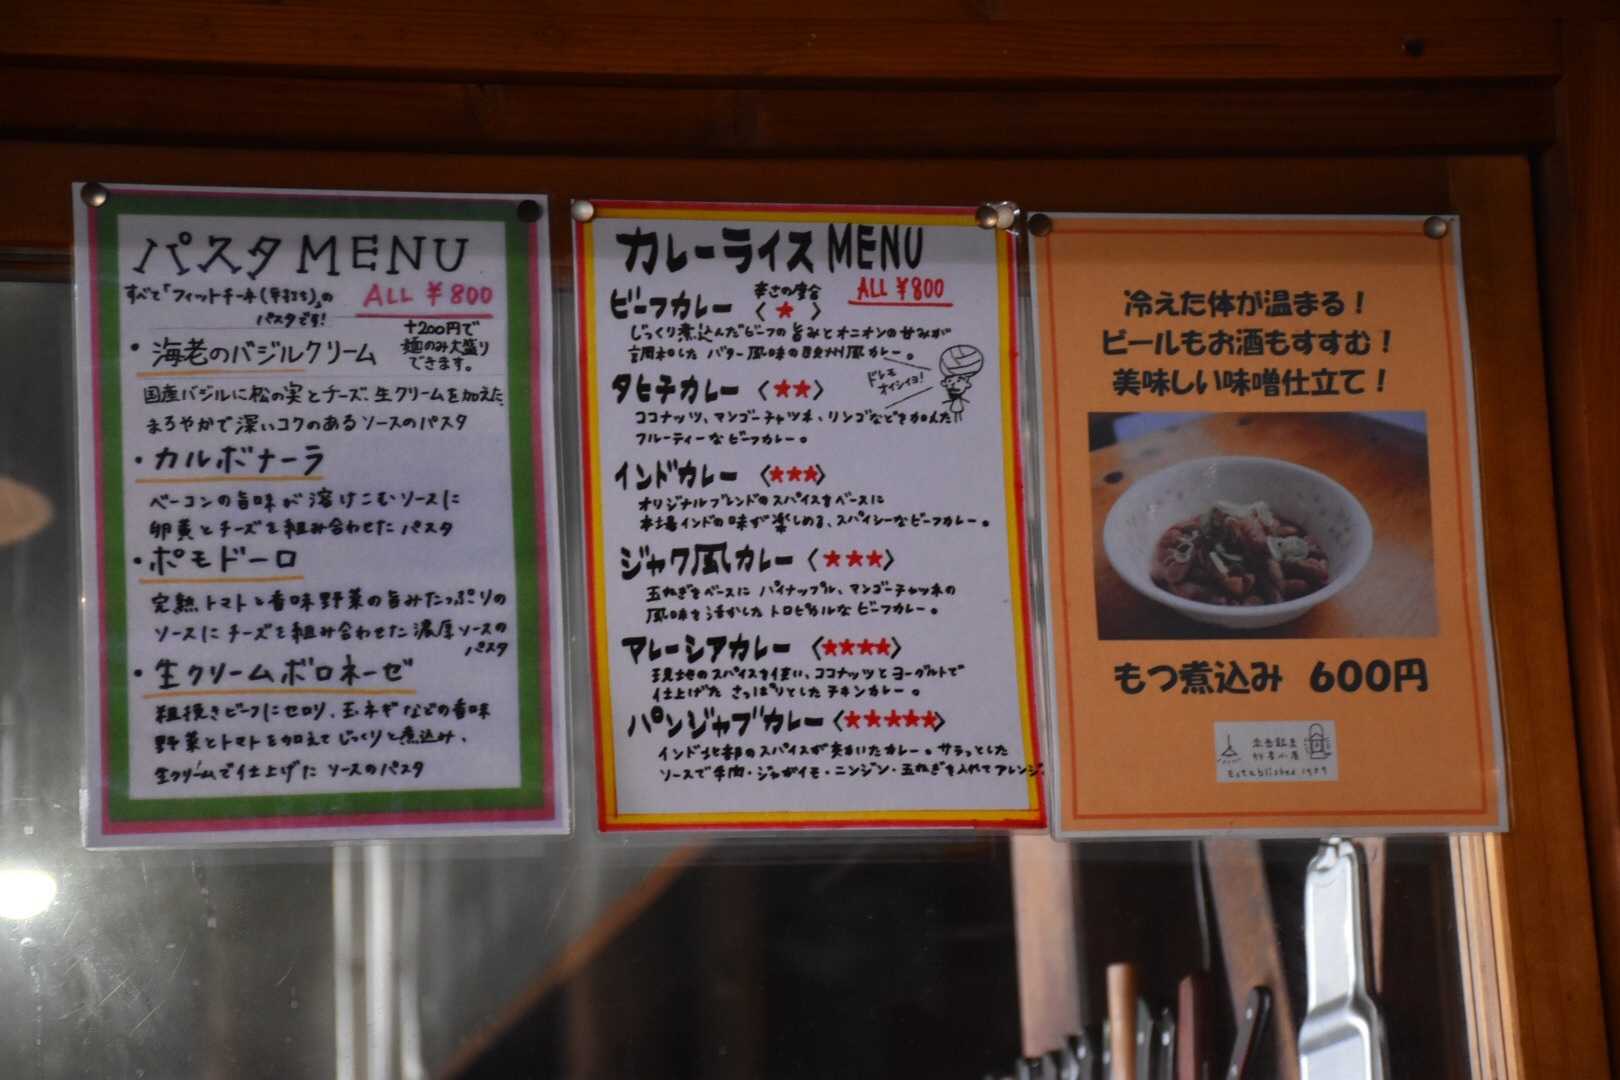 パスタ MENU
すべて「フィットチーネ(平打ち)」の
パスタです!
ALL ¥800
+200円で
麺のみ大盛り
できます。
・海老のバジルクリーム
国産バジルに松の実とチーズ、生クリームを加えた
まろやかで深いコクのあるソースのパスタ
・カルボナーラ
ベーコンの旨味が溶けこむソースに
卵黄とチーズを組み合わせたパスタ
・ポモドーロ
完熟トマトと香味野菜の旨みたっぷりの
ソースにチーズを組み合わせた濃厚ソースの
パスタ
・生クリームボロネーゼ
粗挽きビーフにセロリ、玉ネギなどの香味
野菜とトマトを加えてじっくりと煮込み、
生クリームで仕上げたソースのパスタ
カレーライス MENU
辛さの度合
ALL ¥800
ビーフカレー 〈★〉
じっくり煮込んだビーフの旨みとオニオンの甘みが
調和したバター風味の欧州風カレー。
ドレモ
オイシイヨ!
タヒチカレー 〈★★〉
ココナッツ、マンゴーチャツネ、リンゴなどを加えた
フルーティーなビーフカレー。
インドカレー 〈★★★〉
オリジナルブレンドのスパイスをベースに
本場インドの味が楽しめる、スパイシーなビーフカレー。
ジャワ風カレー 〈★★★〉
玉ねぎをベースにパイナップル、マンゴーチャツネの
風味を活かしたトロピカルなビーフカレー。
マレーシアカレー 〈★★★★〉
現地のスパイスを使い、ココナッツとヨーグルトで
仕上げたさっぱりとしたチキンカレー。
パンジャブカレー 〈★★★★★〉
インド北部のスパイスが効いたカレー。サラッとした
ソースで牛肉・ジャガイモ・ニンジン・玉ねぎを入れてアレンジ。
冷えた体が温まる!
ビールもお酒もすすむ!
美味しい味噌仕立て!
もつ煮込み 600円
Established 1959